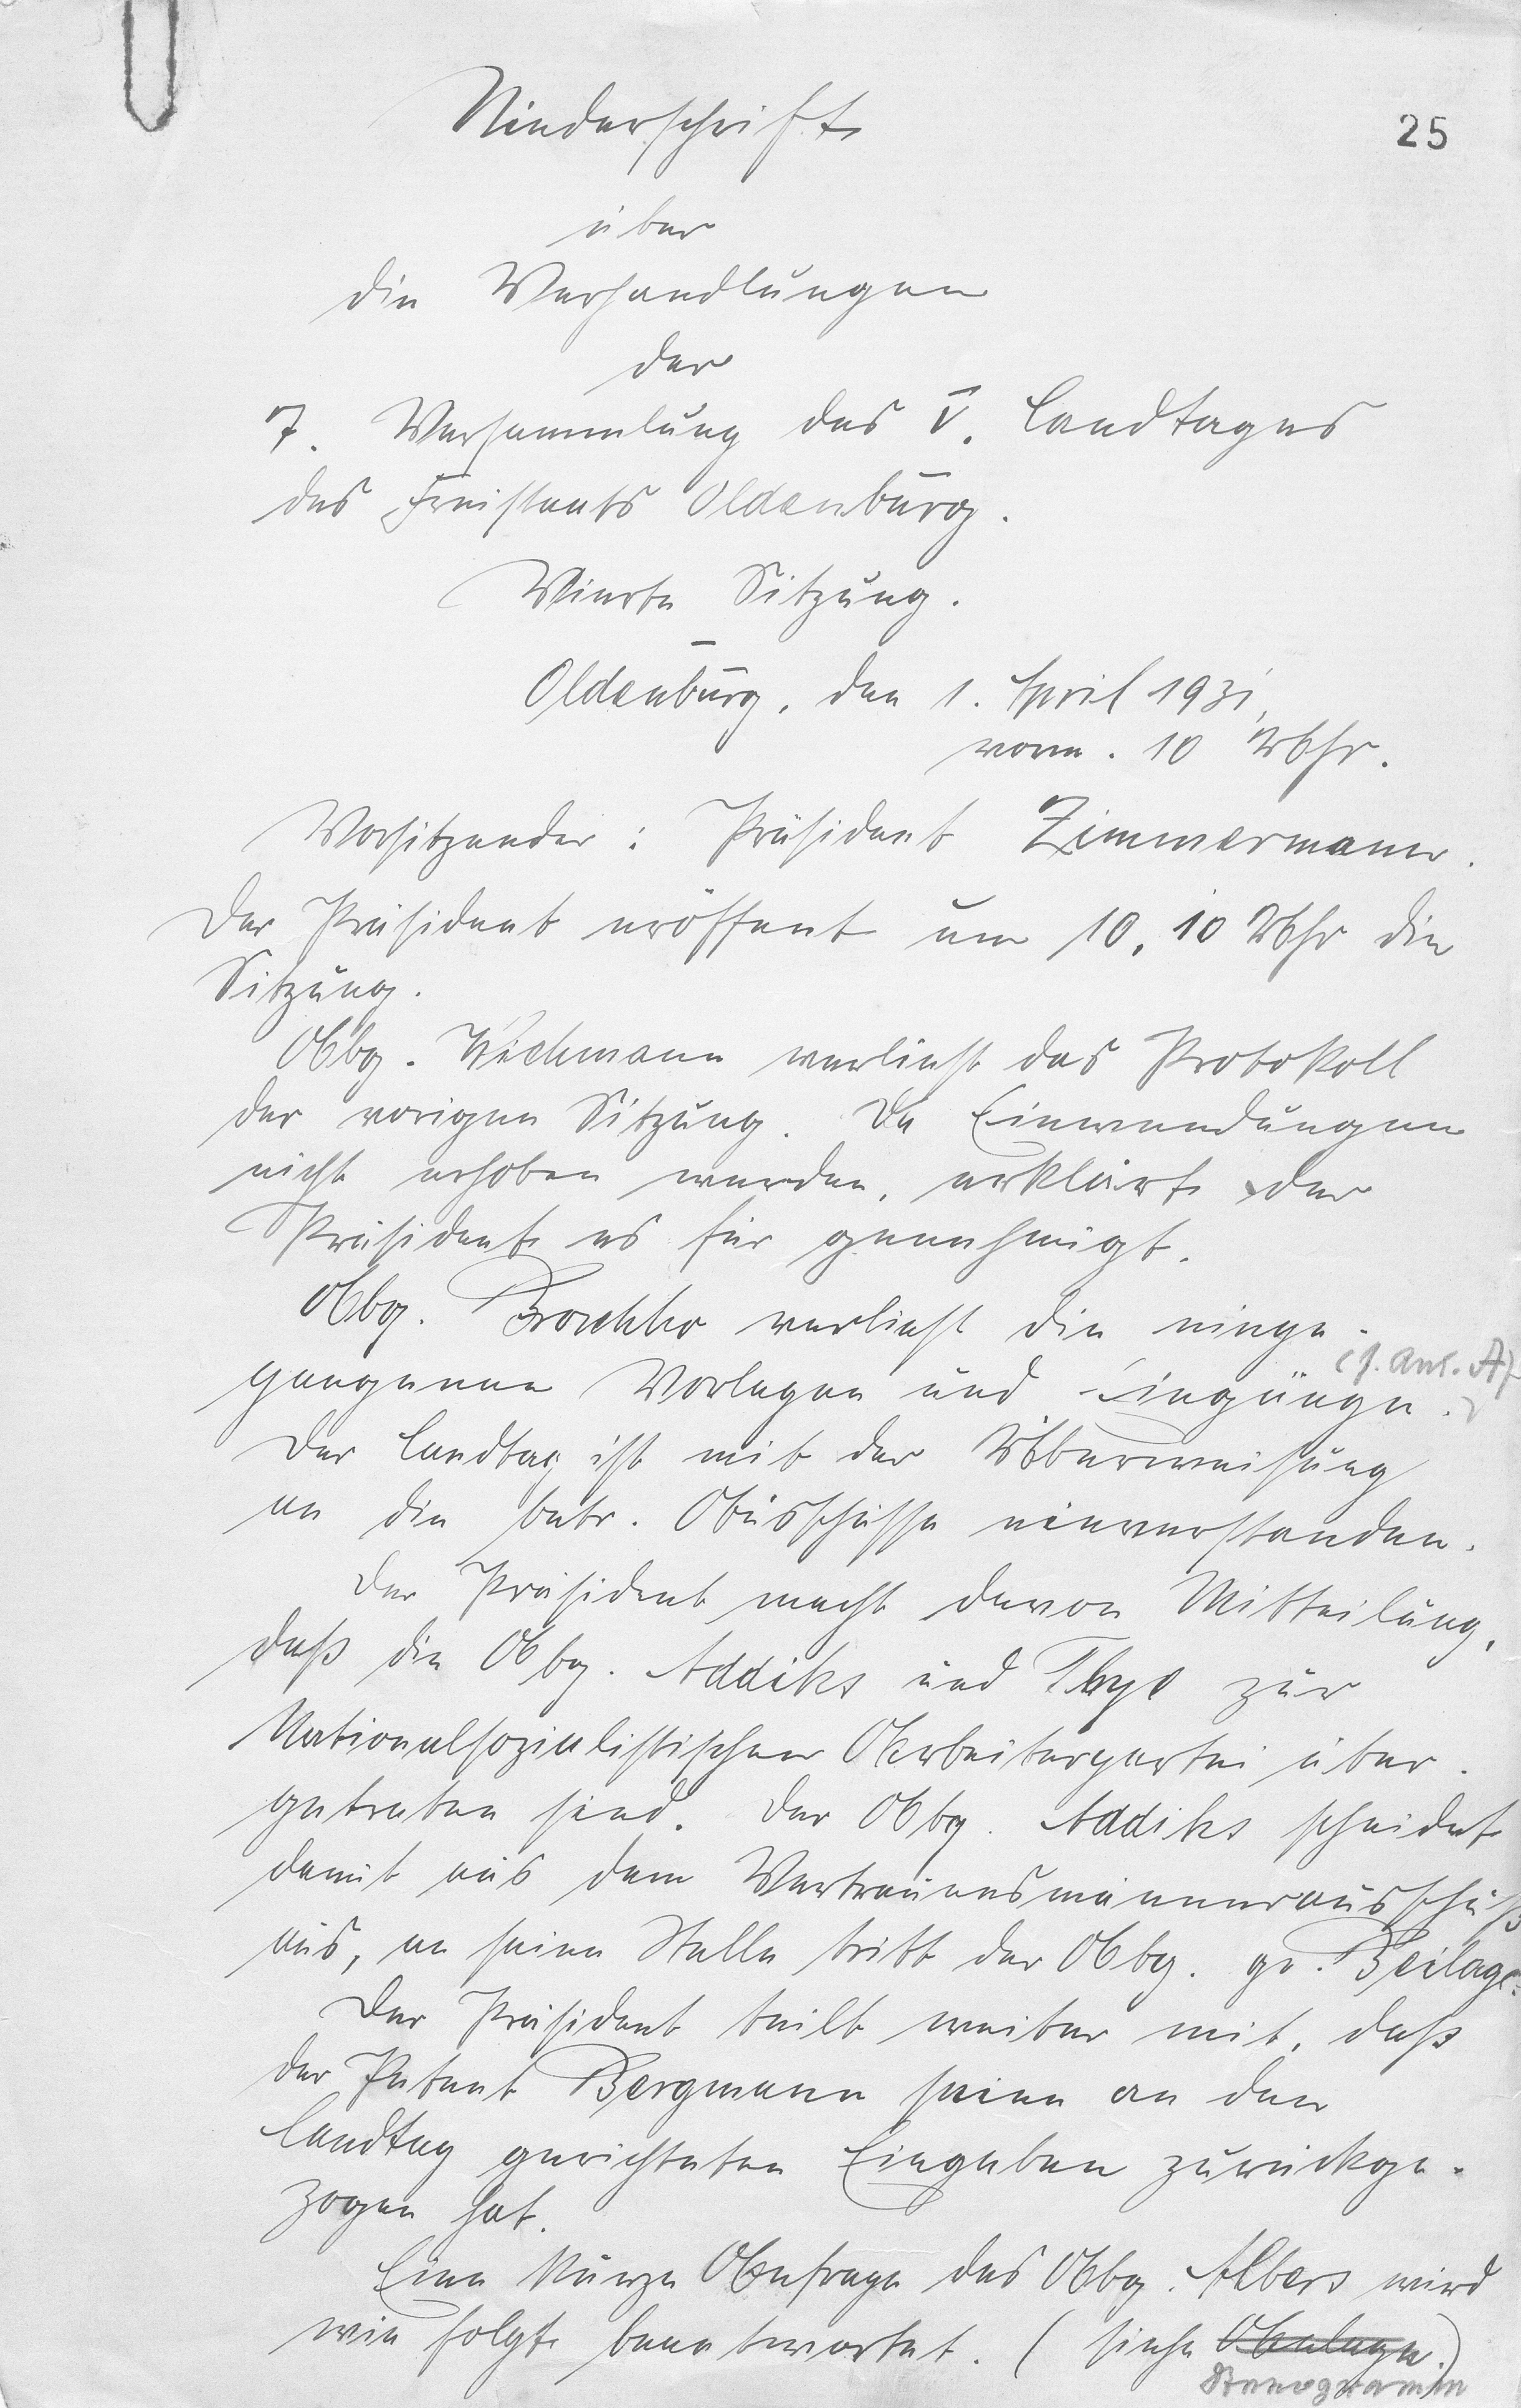 Niederschrift
25
über
die Verhandlungen
der
7. Versammlung des V. Landtages
des Freistaats Oldenburg.
Vierte Sitzung.
Oldenburg, den 1. April 1931,
vorm. 10 Uhr.
Vorsitzender: Präsident Zimmermann.
Der Präsident eröffent um 10,10 Uhr die
Sitzung.
Abg. Wichmann verliest das Protokoll
der vorigen Sitzung. Da Einwendungen
nicht erhoben werden, erklärt der
Präsident es für genehmigt.
Abg. verliest die einge-
(s. Anl. A)
gangenen Vorlagen und Eingänge.
Der Landtag ist mit der Überweisung
an die betr. Ausschüsse einverstanden.
Der Präsident macht davon Mitteilung,
daß die Abg. Addiks und Thye zur
Nationalsozialistischen Arbeiterpartei über-
getreten sind. Der Abg. Addiks scheidet
damit aus dem Vertrauensmännerausschuß
aus, an seine Stelle tritt der Abg. gr. Beilage.
Der Präsident teilt weiter mit, daß
der Petent Bergmann seine an den
Landtag gerichteten Eingaben zurückge-
zogen hat.
Eine kurze Anfrage des Abg. Albers wird
wie folgt beantwortet. (siehe Anlage.)
Stenogramm